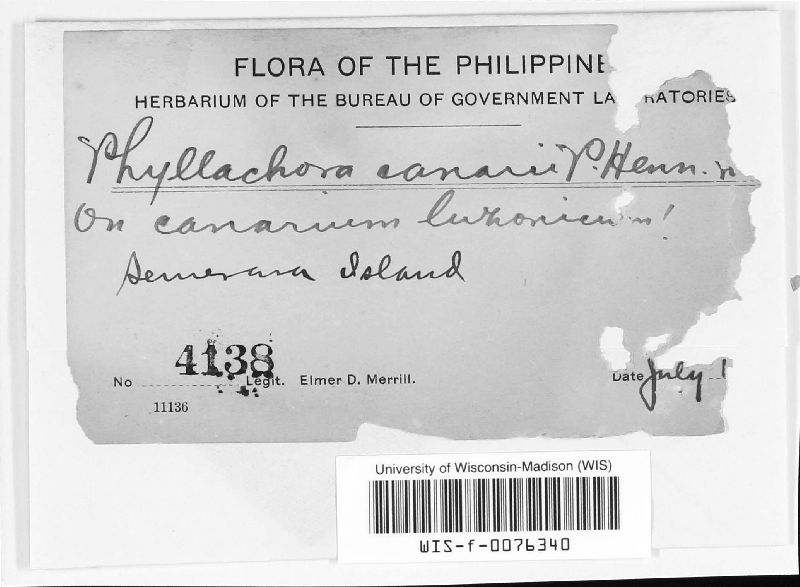 FLORA OF THE PHILIPPINE
HERBARIUM OF THE BUREAU OF GOVERNMENT LA RATORIES
Phyllachora canarii P. Henn. n
On canarium luzonicum!
Semerara Island
4138
No Legit. Elmer D. Merrill.
Date July 1
11136
University of Wisconsin-Madison (WIS)
WIS-f-0076340